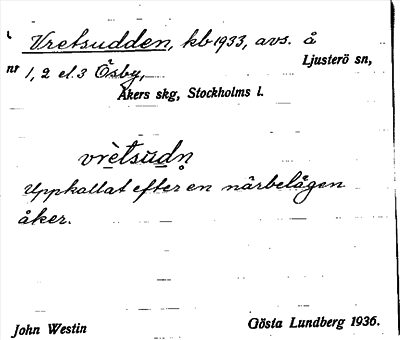 Vretsudden, kb 1933, avs. å
Ljusterö sn,
nr 1, 2 el. 3 Ösby,
Åkers skg, Stockholms l.
vrètsùdn̥
Uppkallat efter en närbelägen
åker.
John Westin
Gösta Lundberg 1936.